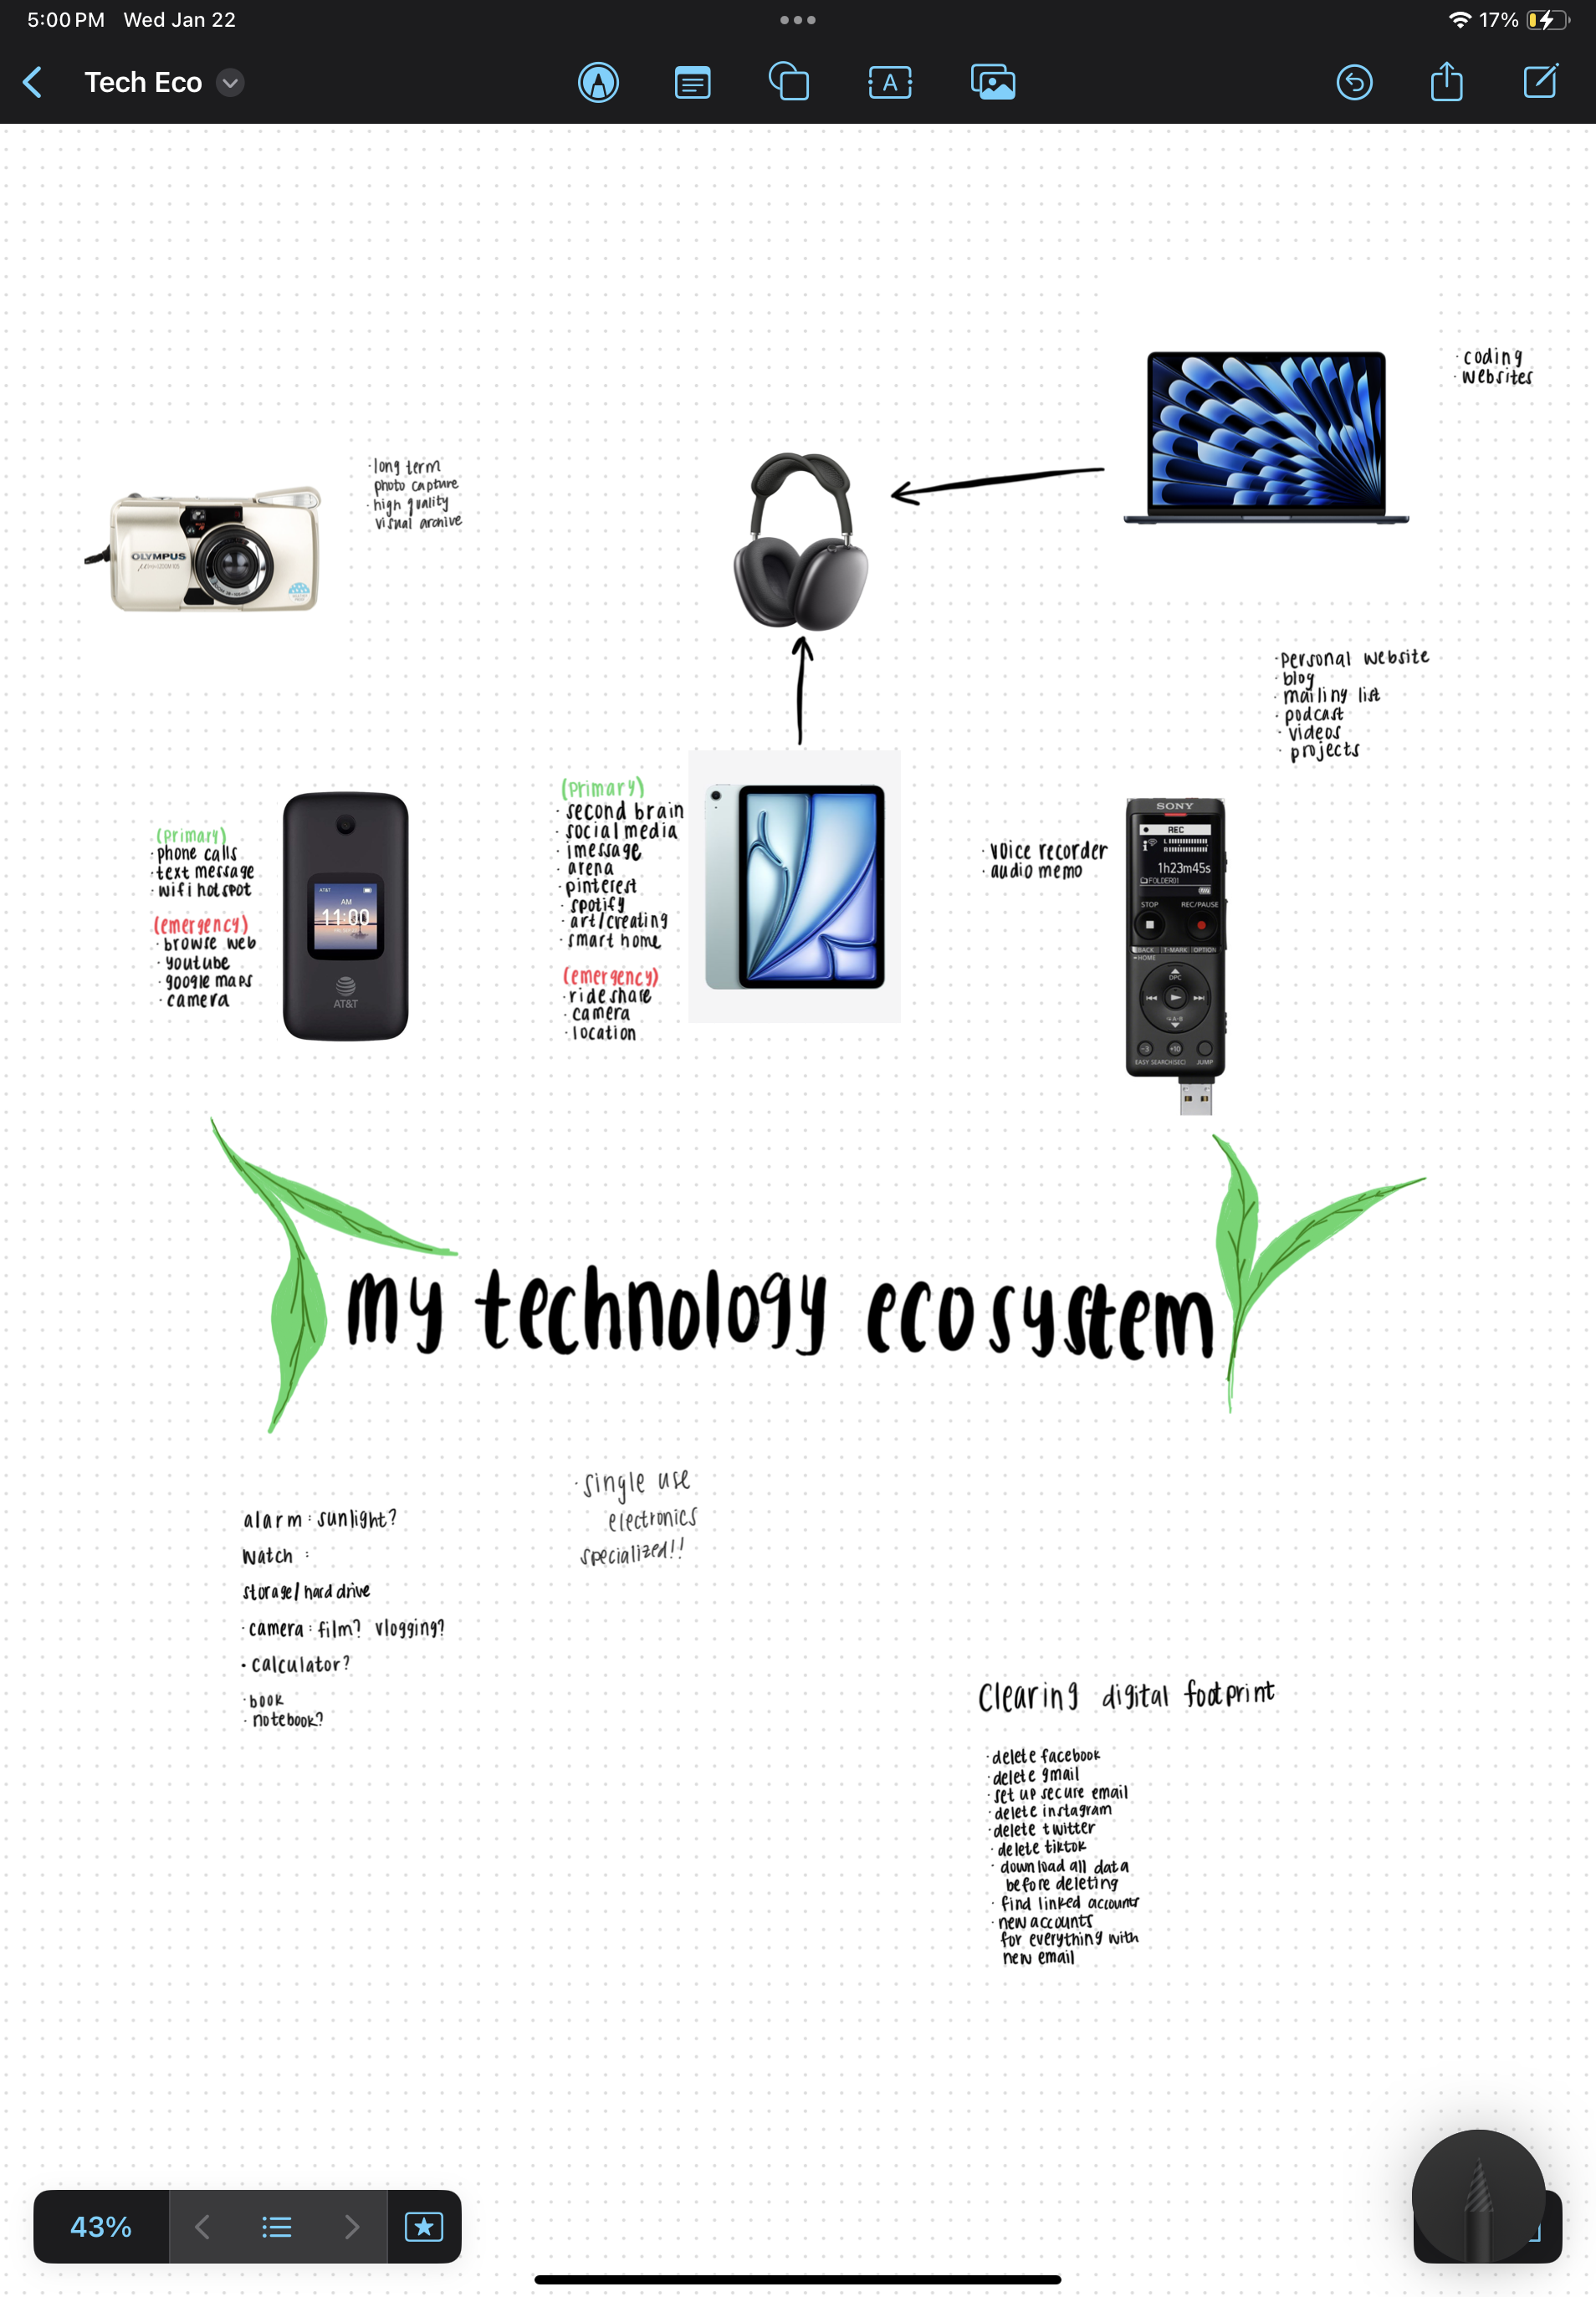 5:00 PM Wed Jan 22
17%
Tech Eco
A
· coding
· websites
· long term
photo capture
· high quality
visual archive
OLYMPUS
· personal website
· blog
· mailing list
· podcast
· videos
· projects
(primary)
· phone calls
· text message
· wifi hotspot
(emergency)
· browse web
· youtube
· google maps
· camera
AT&T
AM
11:00
AT&T
(primary)
· second brain
· social media
· imessage
· arena
· pinterest
· spotify
· art/creating
· smart home
(emergency)
· rideshare
· camera
· location
· voice recorder
· audio memo
SONY
REC
L
R
1h23m45s
FOLDER01
STOP REC/PAUSE
BACK T-MARK OPTION
HOME
DPC
A-B
-3 +10
EASY SEARCH(SEC) JUMP
my technology ecosystem
· single use
electronics
specialized!!
alarm : sunlight?
watch :
storage/hard drive
· camera : film? vlogging?
· calculator?
· book
· notebook?
Clearing digital footprint
· delete facebook
· delete gmail
· set up secure email
· delete instagram
· delete twitter
· delete tiktok
· download all data
before deleting
· find linked accounts
· new accounts
for everything with
new email
43%